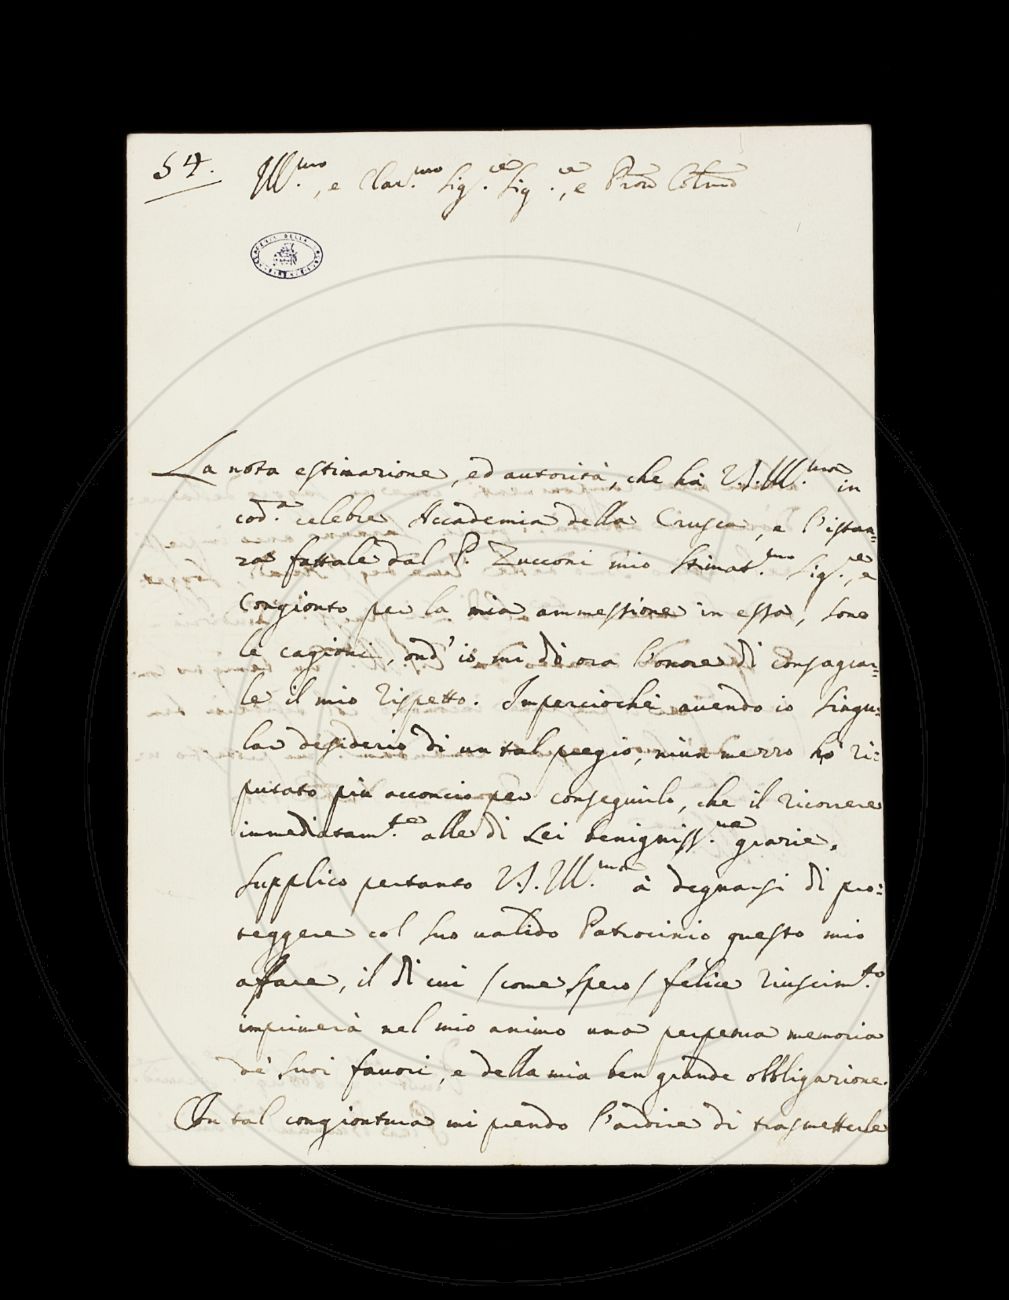 54.
Ill.mo, e Clar.mo Sig.re Sig.re, e Pron Colmo
La nota estimazione, ed autorità, che hà V.S. Ill.ma in
cod.a celebre Accademia della Crusca, e l'istan=
za fattale dal P. Zucconi mio stimat.mo Sig.re, e
Congionto per la mia ammessione in essa, sono
le cagioni, ond' io mi dò ora l'onore di consagrar=
le il mio rispetto. Imperciochè avendo io singu=
lar desiderio di un tal pregio, niun mezzo hò ri=
putato più acconcio per conseguirlo, che il ricorrere
immediatam.te alle di Lei benigniss.me grazie.
Supplico pertanto V.S. Ill.ma à degnarsi di pro=
teggere col suo valido Patrocinio questo mio
affare, il di cui (come spero) felice riuscim.to
imprimerà nel mio animo una perpetua memoria
de' suoi favori, e della mia ben grande obbligazione.
In tal congiontura mi prendo l'ardire di trasmetterle